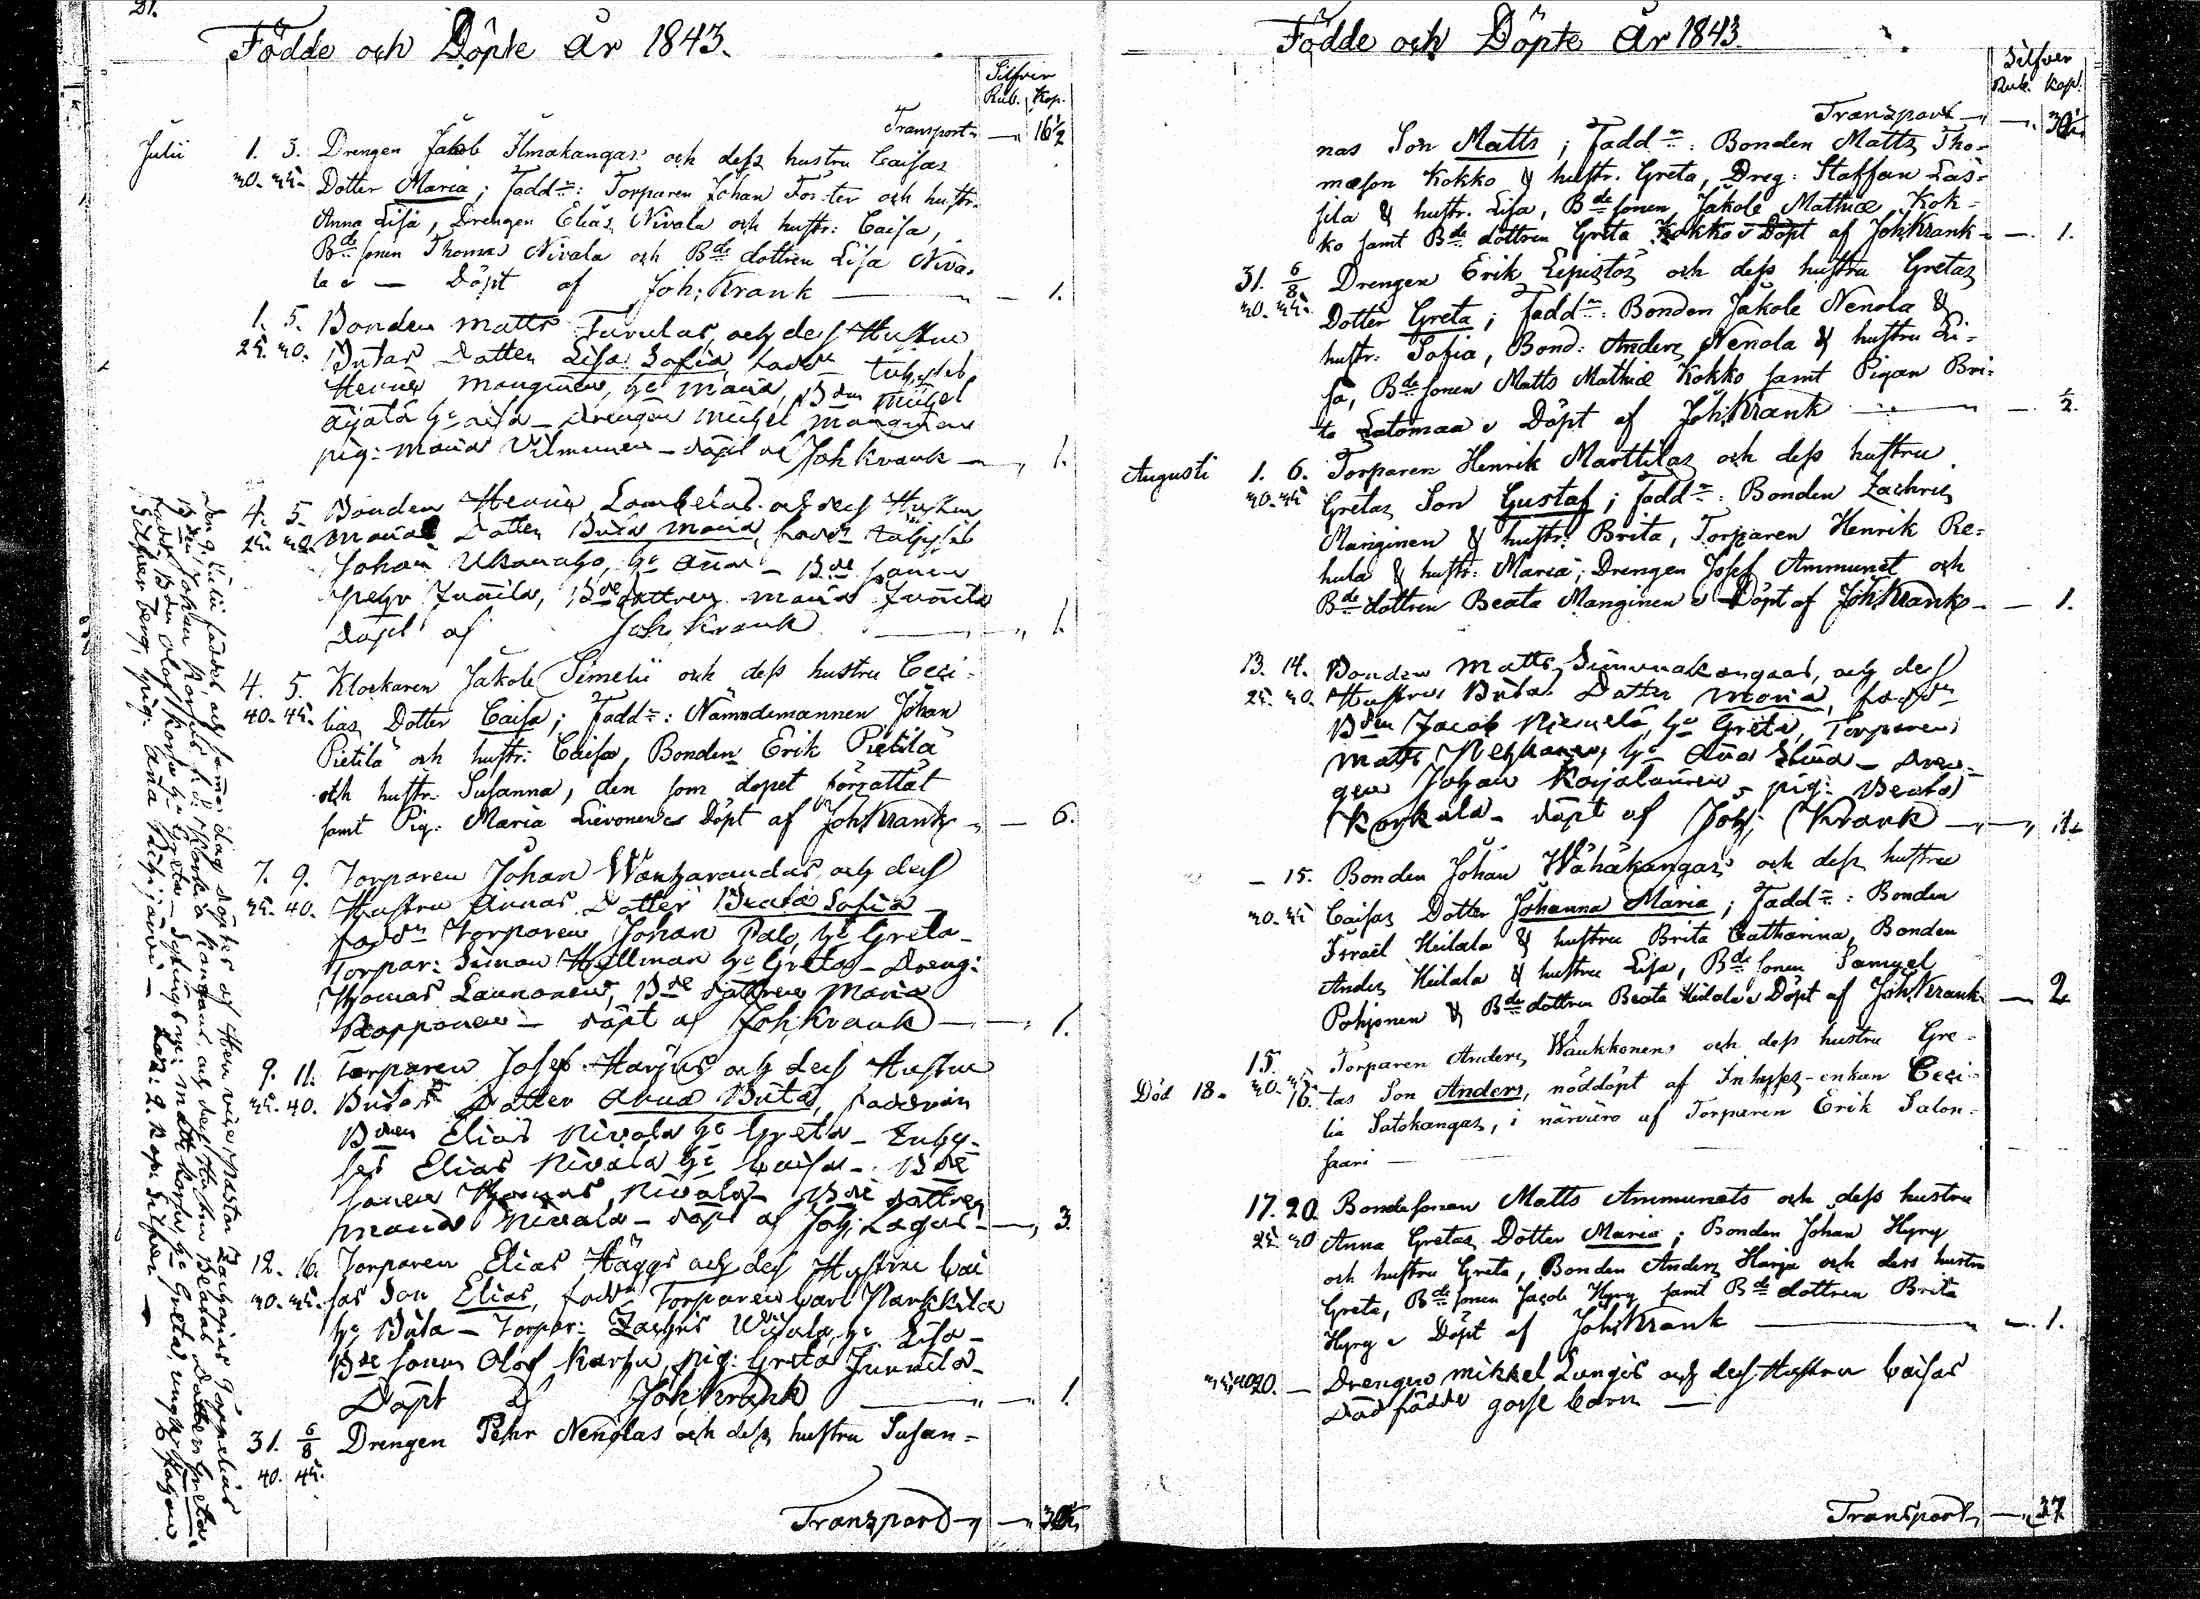 21.
Födde och Döpte år 1843.
Silfver
Rub. Kop.
Transport — 16½
Julii 1. 3. Drengen Jakob Ilmakangas och dess hustru Caisas
30. 35. Dotter Maria; Fadd:r: Torparen Johan Forster och hustr:
Anna Lisa, Drengen Elias Nivala och hustr: Caisa,
B:de sonen Thomas Nivala och B:de dottren Lisa Niva-
la — Döpt af Joh: Krank — 1.
1. 5. Bonden Matts Turulas, och dess Hustru
25. 30. Britas Dotter Lisa Sofia, fadd:r Inhyses
Henric Manginen, h:u Maria, B:den Michel
Äijälä h:u Caisa — Drengen Michel Manginen
pig: Maria Vilmunen — döpt af Joh Krank — 1.
4. 5. Bonden Henric Lambelas och dess Hustru
25. 30. Marias Dotter Brita Maria, fadd:r Inhyses
Johan Uksonaho, h:u Anna — B:de sonen
Pehr Junnila, B:de dottren Maria Junnila
Döpt af Joh. Krank — 1.
4. 5. Klockaren Jakob Simelii och dess hustru Ceci-
40. 45. lias Dotter Caisa; Fadd:r: Nämndemannen Johan
Pietilä och hustr: Caisa, Bonden Erik Pietilä
och hustr: Susanna, den som dopet förrättat
samt Pig: Maria Lievonen Döpt af Joh Krank — 6.
7. 9. Torparen Johan Wanharandas och dess
35. 40. Hustru Annas Dotter Beata Sofia —
fadd:r Torparen Johan Palo h:u Greta —
Torpar: Simon Hellman h:u Greta — Dreng:
Thomas Launonen, B:de dottren Maria
Ropponen — döpt af Joh Krank — 1.
9. 11. Torparen Josef Harjus och dess Hustru
35. 40. Britas Dotter Anna Brita, faddran
B:den Elias Nivala h:u Greta — Inhy-
ses Elias Nivala h:u Caisa — B:de
sonen Thomas Nivala — B:de dottren
Maria Nivala — döpt af Joh: Lagus — 3.
12. 16. Torparen Elias Häggs och dess Hustru Cai
30. 35. sas Son Elias, fadd:r Torparen Carl Markkila
h:u Brita — Torpar: Zachris h:u Lisa —
B:de sonen Olof Karhu, pig: Greta Junnila —
Döpt af Joh Krank — 1.
31. 6/8 Drengen Pehr Nenolas och dess hustru Susan-
40. 45.
Transport —
Den 9. Julii föddes, och samma dag döptes af Herr vice Pastor Zacharias Toppelius
B:den Johan Korfus och dess Hustru Beatas Dotter Greta.
Fadd: B:den Olof Korfu h:u Greta — Matts Korfu h:u Greta,
pig: Anna — Kop: Silfver —
Födde och Döpte år 1843.
Silfver
Rub. Kop.
Transport —
nas Son Matts; Fadd:r: Bonden Matts Tho-
mæson Kokko & hustr: Greta, Dreg: Staffan Las-
sila & hustr: Lisa, B:de sonen Jakob Mathiæ Kok-
ko samt B:de dottren Greta Kokko Döpt af Joh: Krank — 1.
31. 6/8 Drengen Erik Lepistös och dess hustru Gretas
30. 35. Dotter Greta; Fadd:r: Bonden Jakob Nenola &
hustr: Sofia, Bond: Anders Nenola & hustru Li-
sa, B:de sonen Matts Mathiæ Kokko samt Pigan Bri-
ta Latomaa Döpt af Joh: Krank — ½.
Augusti 1. 6. Torparen Henrik Marttilas och dess hustru
30. 35 Gretas Son Gustaf; Fadd:r: Bonden Zachris
Manginen & hustr: Brita, Torparen Henrik Re-
hula & hustr: Maria; Drengen Josef Ammunet och
B:de dottren Beata Manginen Döpt af Joh Krank — 1.
13. 14. Bonden Matts Simunakangas, och dess
25. 30. Hustru Britas Dotter Maria, fadd:r
B:den Jacob Niemelä, h:u Greta, Torparen
Matts h:u Anna Stina — Dren-
gen Johan Karjalainen — pig: Beata
Korkala — döpt af Joh: Krank —
— 15. Bonden Johan Wähäkangas och dess hustru
30. 35 Caisas Dotter Johanna Maria; Fadd:r: Bonden
Israel Heilala & hustru Brita Catharina, Bonden
Anders Heilala & hustru Lisa, B:de sonen Samuel
Pohjonen & B:de dottren Beata Heilala Döpt af Joh Krank — 2
15. Torparen Anders Waukkonens och dess hustru Gre-
Död 18. 30. 16. tas Son Anders, nöddöpt af Inhyses-enkan Ceci-
lia Satokangas, i närvaro af Torparen Erik Salon-
saari —
17. 20. Bondesonen Matts Ammunets och dess hustru
25. 30 Anna Gretas Dotter Maria; Bonden Johan Hyry
och hustru Greta, Bonden Anders Harju och dess hustru
Greta, B:de sonen Jacob Hyry samt B:de dottren Brita
Hyry Döpt af Joh: Krank — 1.
20. — Drengens Mikkel Lungis och dess Hustru Caisas
Död födde gosse barn —
Transport — 37